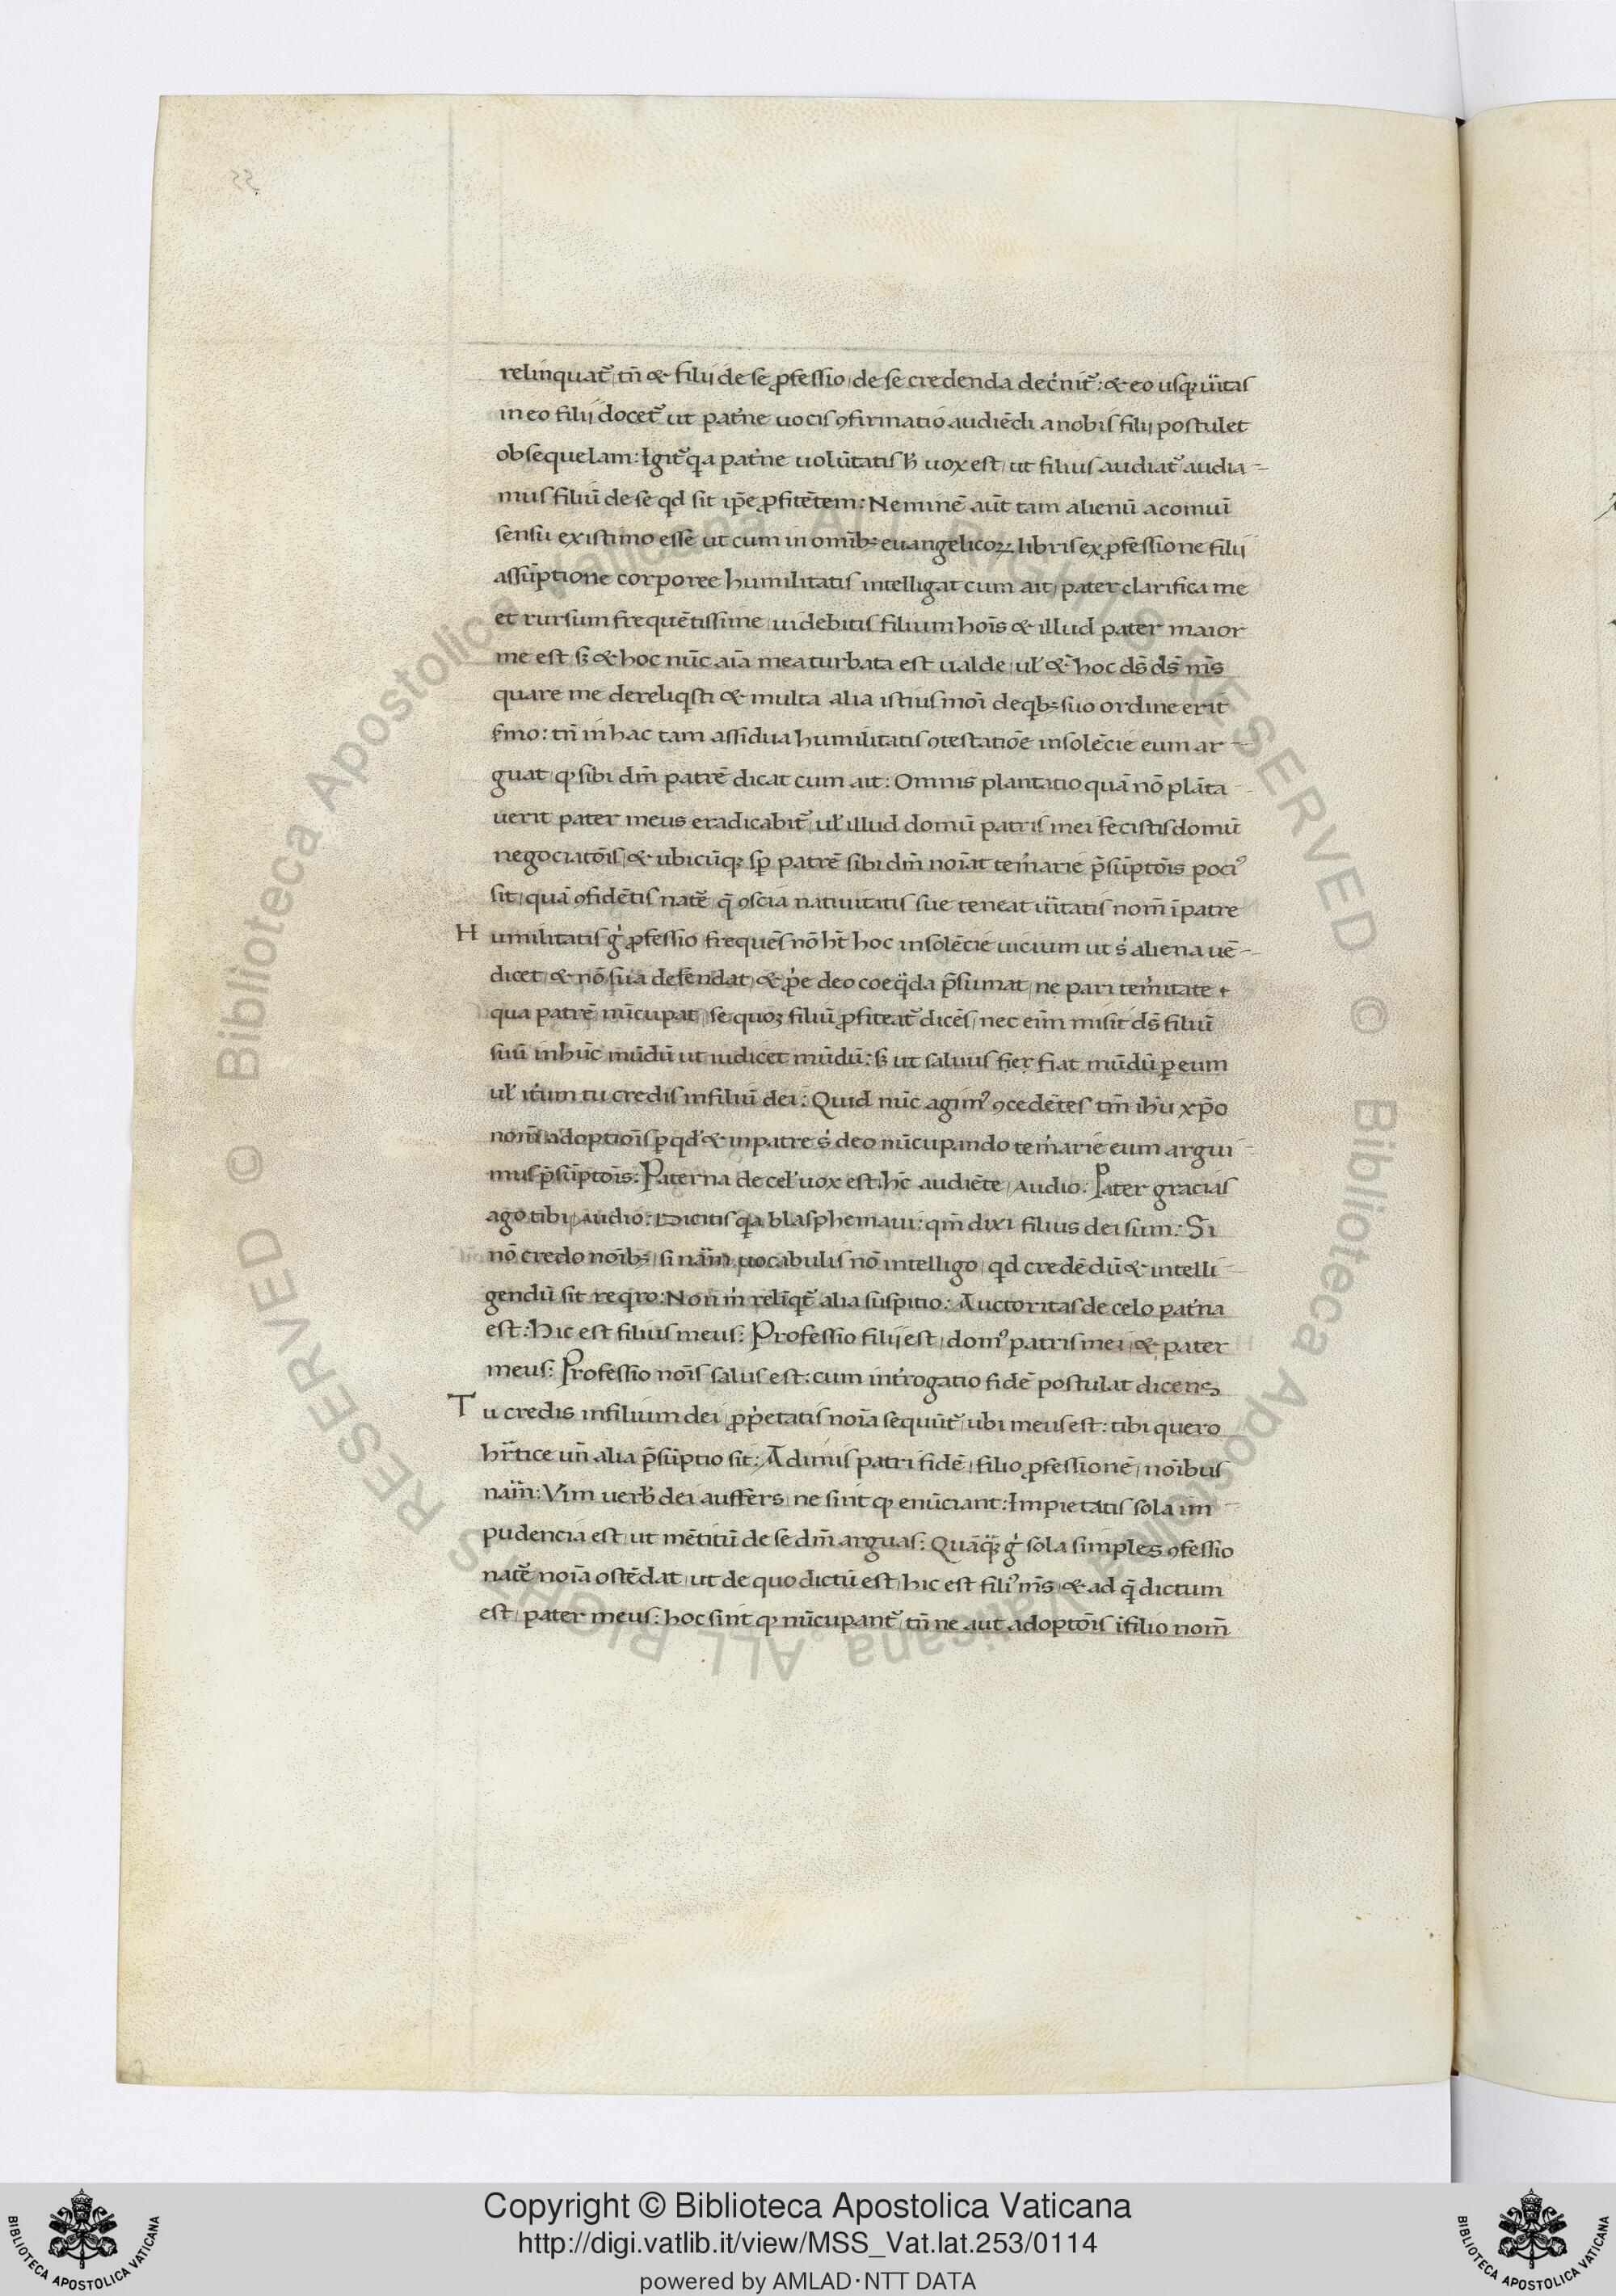 relinquat᷒ tn̄ & filii de se ꝓfessio de se credenda dec̓nit᷒: & eo usqꝫ ūitas
in eo filii docet᷒ ut pat̓ne uocis ꝯfirmatio audiēdi a nobis filii postulet
obsequelam: Igit᷒ qa pat̓ne uolūtatis h̓ uox est ut filius audiat᷒ audia-
mus filiū de se qd sit ip̄e ꝓfitētem: Neminē aūt tam alienū a comuī
sensu existimo esse ut cum in omībꝫ euangelicoꝝ libris ex ꝓfessione filii
assūptione corporee humilitatis intelligat cum ait pater clarifica me
et rursum frequētissime uidebitis filium hoīs & illud pater maior
me est sꝫ & hoc nūc aīa mea turbata est ualde ul̓ & hoc ds̄ ds̄ ms̄
quare me dereliqsti & multa alia istiusmoī de qbꝫ suo ordine erit
s̓mo: tn̄ in hac tam assidua humilitatis ꝯtestatiōe insolēcie eum ar-
guat ꝙ sibi dm̄ patrē dicat cum ait: Omnis plantatio quā nō plāta
uerit pater meus eradicabit᷒ ul̓ illud domū patris mei fecistis domū
negociatōis & ubicūqꝫ sp̄ patrē sibi dm̄ noīat tem̓arie p̄sūptōis poci᷒
sit quā ꝯfidētis nat᷒e q̄ ꝯscia natiuitatis sue teneat ūitatis nom̄ ī patre
Humilitatis g̓ ꝓfessio frequēs nō ht̄ hoc insolēcie uicium ut s̓ aliena uē-
dicet & nō sua defendat & ꝓp̓e deo coeq̄da p̄sumat ne pari tem̓itate
qua patrē nūcupat se quoqꝫ filiū ꝓfiteat᷒ dicēs nec eīm misit ds̄ filiū
suū in hūc mūdū ut iudicet mūdū: sꝫ ut saluus fier fiat mūdū ꝑ eum
ul̓ it̓um tu credis in filiū dei: Quid nūc agim᷒ ꝯcedētes tm̄ ihū xp̄o
nom̄ adoptiōis ꝑ qd̓ & in patre s̓ deo nūcupando tem̓arie eum argui-
mus p̄sūptōis: Paterna de cel̓ uox est hc̄ audiēte Audio: Pater gracias
ago tibi Audio: Dicitis qa blasphemaui: qm̄ dixi filius dei sum: Si
nō credo noībꝫ si nat᷒am uocabulis nō intelligo qd credēdū & intelli-
gendū sit reqro: Non m̓ relīqt᷒ alia suspitio: Auctoritas de celo pat̓na
est: Hic est filius meus: Professio filii est dom᷒ patris mei & pater
meus: Professio noīs salus est: cum int̓rogatio fidē postulat dicens
Tu credis in filium dei ꝓp̓etatis noīa sequūt᷒ ubi meus est: tibi quero
hr̄tice un̄ alia p̄sūptio sit: Adimis patri fidē filio ꝓfessionē noībus
nat᷒am: Vim uerb̓ dei auffers ne sint ꝙ enūciant: Impietatis sola im-
pudencia est ut mētitū de se dm̄ arguas: Quāqꝫ g̓ sola simplex ꝯfessio
nat᷒e noīa ostēdat ut de quo dictū est hic est fili᷒ ms̄ & ad q̄ dictum
est pater meus: hoc sint ꝙ nūcupant᷒ tn̄ ne aut adoptōis ī filio nom̄
© Biblioteca Apostolica Vaticana ALL RIGHTS RESERVED
© Biblioteca Apostolica Vaticana ALL RIGHTS RESERVED
Copyright © Biblioteca Apostolica Vaticana
http://digi.vatlib.it/view/MSS_Vat.lat.253/0114
powered by AMLAD·NTT DATA
BIBLIOTECA APOSTOLICA VATICANA
BIBLIOTECA APOSTOLICA VATICANA